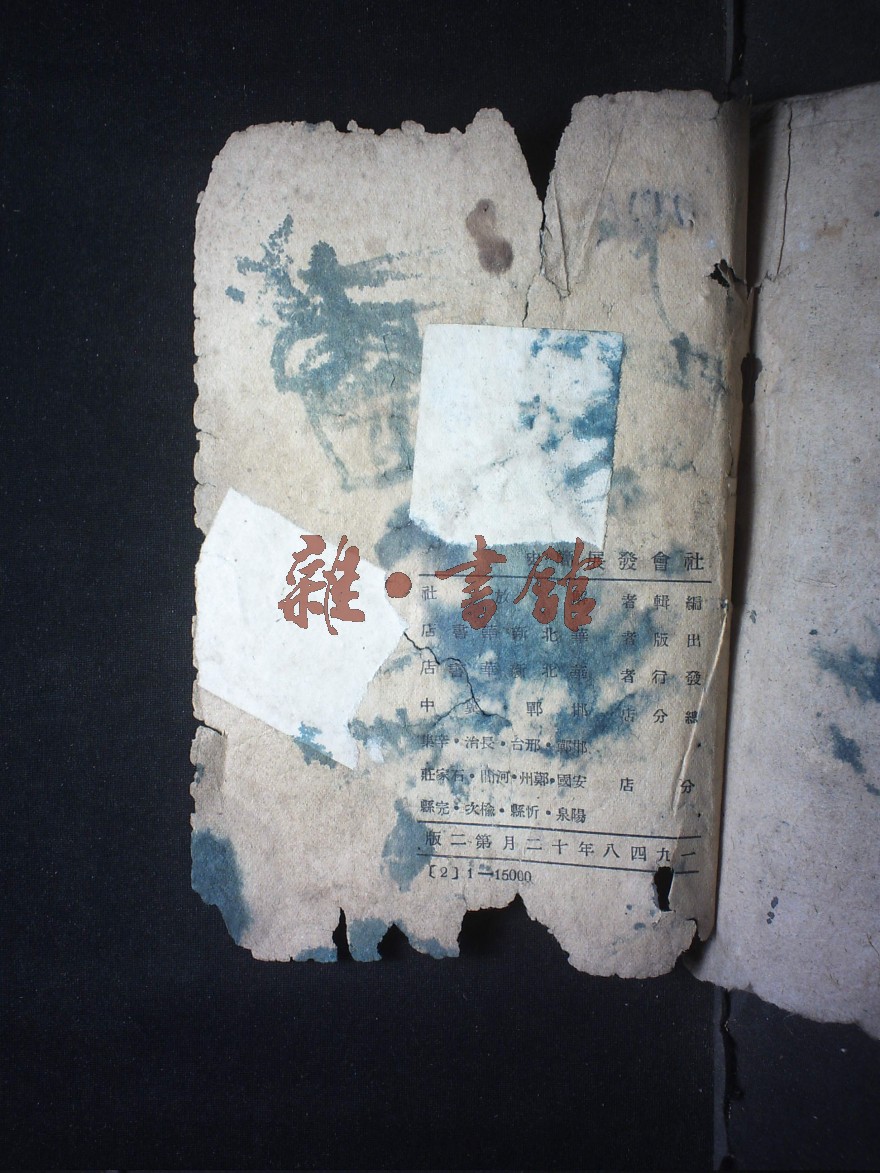 社會發展史
編輯者 社
出版者 華北新華書店
發行者 華北新華書店
總分店 邯鄲 冀中
邯鄲·邢台·長治·辛集
分店 安國·鄭州·河間·石家莊
陽泉·忻縣·楡次·完縣
一九四八年十二月第二版
〔2〕1—15000
雜·書館